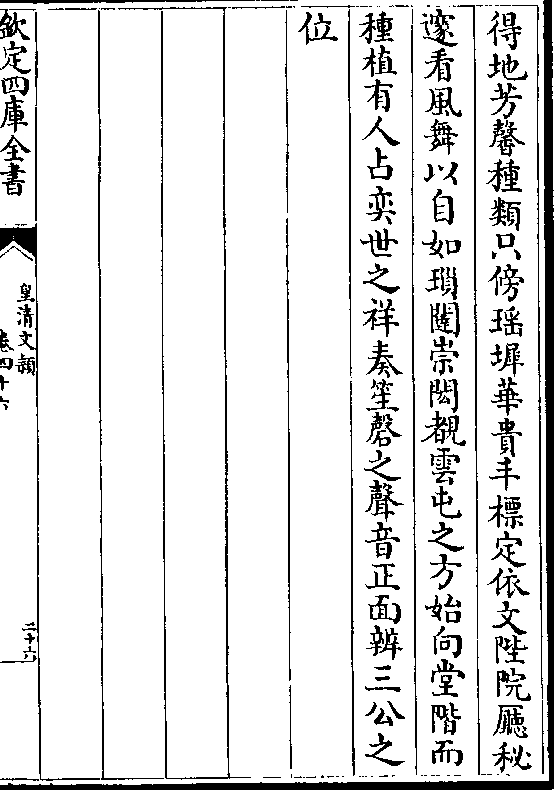 得地芳馨種類只傍瑶墀華貴丰標定依文陛院廳秘
邃看風舞以自如瑣闥崇閎覩雲屯之方始向堂階而
種植有人占奕世之祥奏笙磬之聲音正面辨三公之
位
欽定四庫全書
皇清文穎
卷四十六
二十六